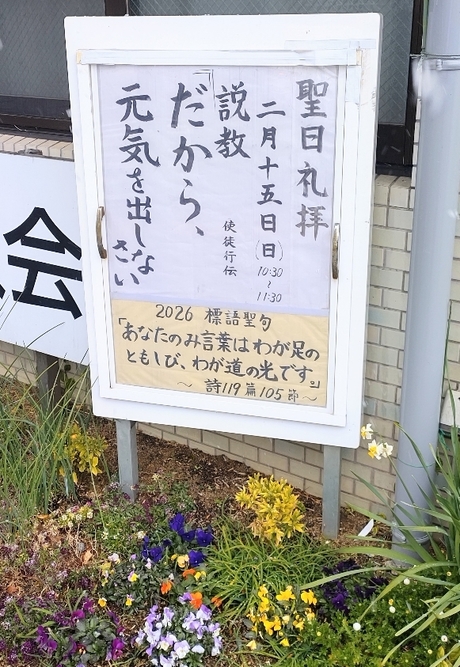 聖日礼拝
二月十五日(日)10:30~11:30
説教
使徒行伝
「だから、
元気を出しなさい
2026 標語聖句
「あなたのみ言葉はわが足の
ともしび、わが道の光です。」
～ 詩119篇105節～
会